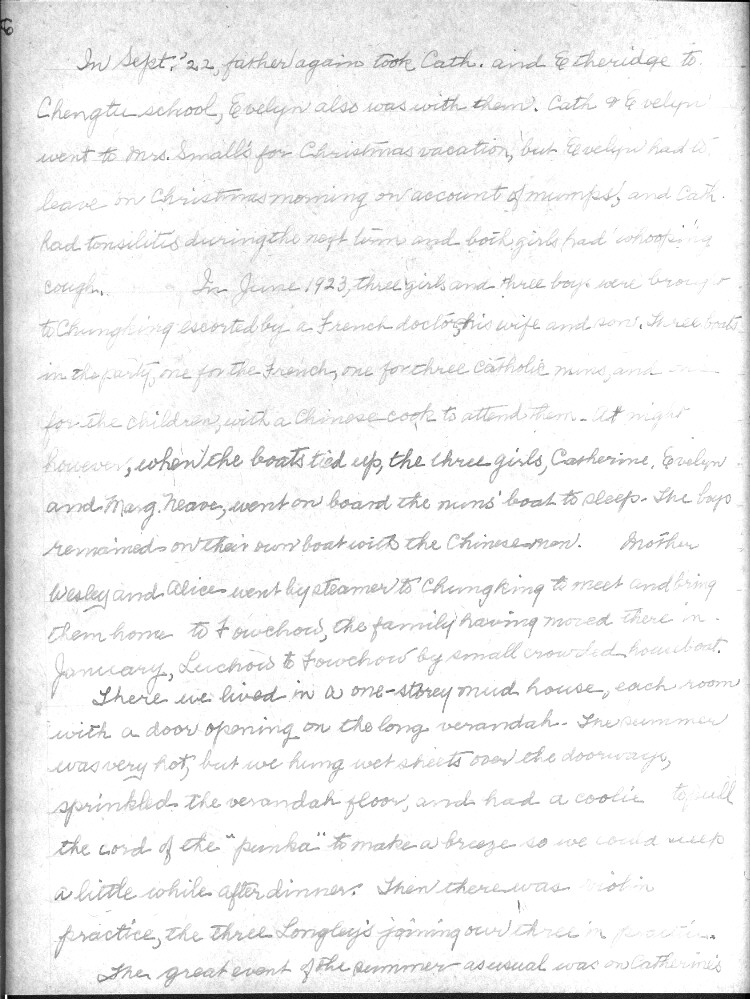 6
In Sept. '22, father again took Cath. and Etheridge to
Chengtu school, Evelyn also was with them. Cath & Evelyn
went to Mrs. Small's for Christmas vacation, but Evelyn had to
leave on Christmas morning on account of mumps, and Cath.
had tonsilitis during the next term and both girls had whooping
cough. In June 1923, three girls and three boys were brought
to Chungking escorted by a French doctor, his wife and son. Three boats
in the party, one for the French, one for three Catholic nuns, and one
for the children, with a Chinese cook to attend them. At night
however, when the boats tied up, the three girls, Catherine, Evelyn
and Marg. Neave, went on board the nuns' boat to sleep. The boys
remained on their own boat with the Chinese men. Mother
Wesley and Alice went by steamer to Chungking to meet and bring
them home to Fowchow, the family having moved there in
January, Luchow to Fowchow by small crowded houseboat.
There we lived in a one-storey mud house, each room
with a door opening on the long verandah. The summer
was very hot, but we hung wet sheets over the doorways,
sprinkled the verandah floor, and had a coolie to pull
the cord of the "punka" to make a breeze so we could sleep
a little while after dinner. Then there was violin
practice, the three Longley's joining our three in practice.
The great event of the summer as usual was on Catherine's